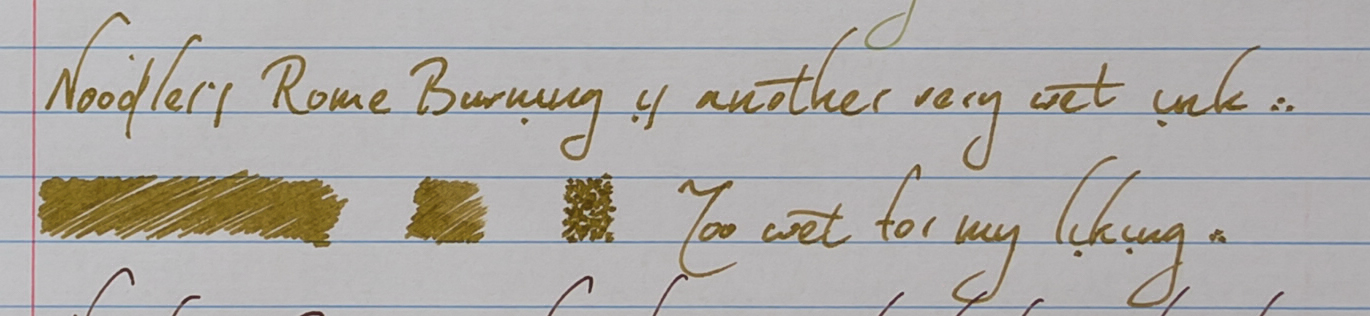 Noodler's Rome Burning is another very wet ink ...
Too wet for my liking ...